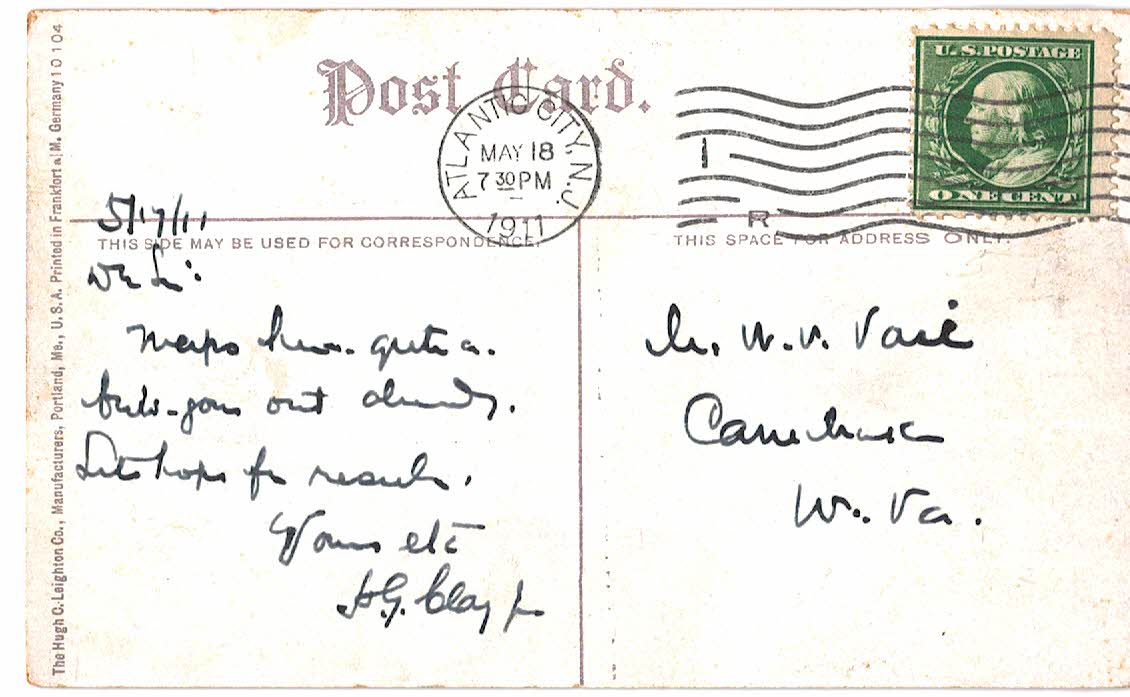 Post Card.
U. S. POSTAGE
ONE CENT
ATLANTIC CITY, N.J.
MAY 18
7 30 PM
1911
1
R
5/17/11
THIS SIDE MAY BE USED FOR CORRESPONDENCE.
Dr Sir:
Maps here.
out already.
Let's hope for results.
Yours etc
H.G. Clay Jr
THIS SPACE FOR ADDRESS ONLY.
Mr. W. V.
W. Va.
The Hugh C. Leighton Co., Manufacturers, Portland, Me., U.S.A. Printed in Frankfort a/M. Germany 10 104